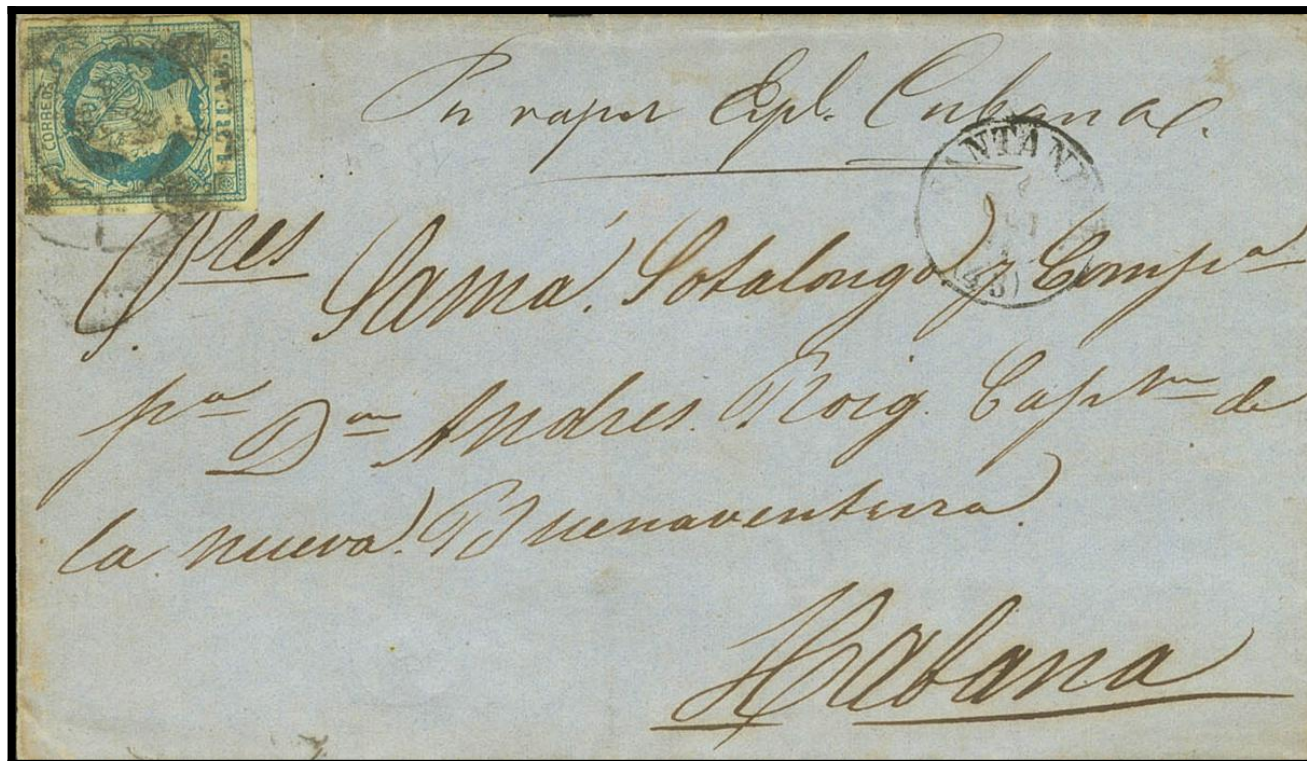 CORREOS
1 REAL
Pr vapor Espl. Cubana
Sres Samá, Sotalongo y Compa
pa Dn Andres Roig Capn de
la nueva Buenaventura
Habana
(43)